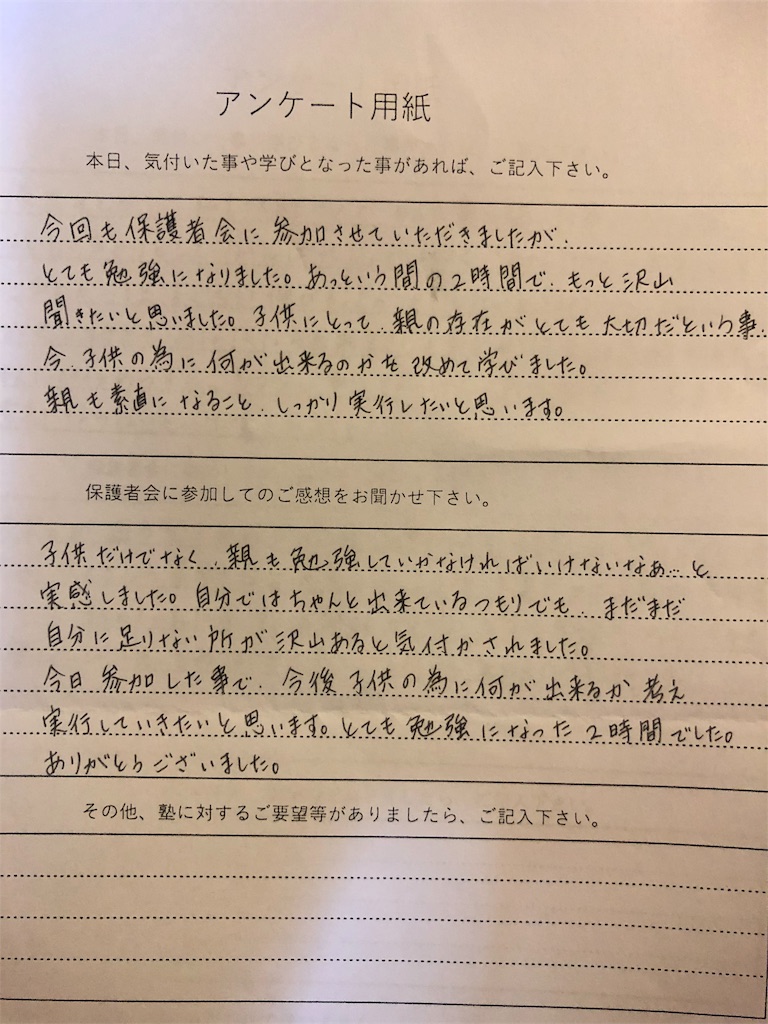 アンケート用紙
本日、気付いた事や学びとなった事があれば、ご記入下さい。
今回も保護者会に参加させていただきましたが、
とても勉強になりました。あっという間の2時間で、もっと沢山
聞きたいと思いました。子供にとって、親の存在がとても大切だという事、
今、子供の為に何が出来るのかを改めて学びました。
親も素直になること、しっかり実行したいと思います。
保護者会に参加してのご感想をお聞かせ下さい。
子供だけでなく、親も勉強していかなければいけないなぁ…と
実感しました。自分ではちゃんと出来ているつもりでも、まだまだ
自分に足りない所が沢山あると気付かされました。
今日参加した事で、今後子供の為に何が出来るか考え
実行していきたいと思います。とても勉強になった2時間でした。
ありがとうございました。
その他、塾に対するご要望等がありましたら、ご記入下さい。